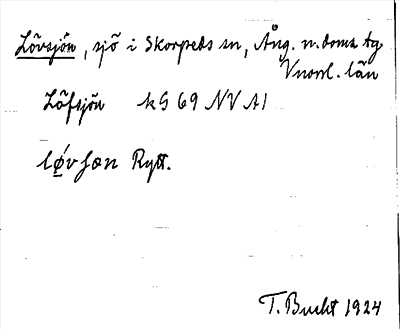 Lövsjön, sjö i Skorpeds sn, Ång. n. doms. tg
Vnorrl. län
Löfsjön kG 69 NV A1
løvʃæn Rytt.
T. Bucht 1924